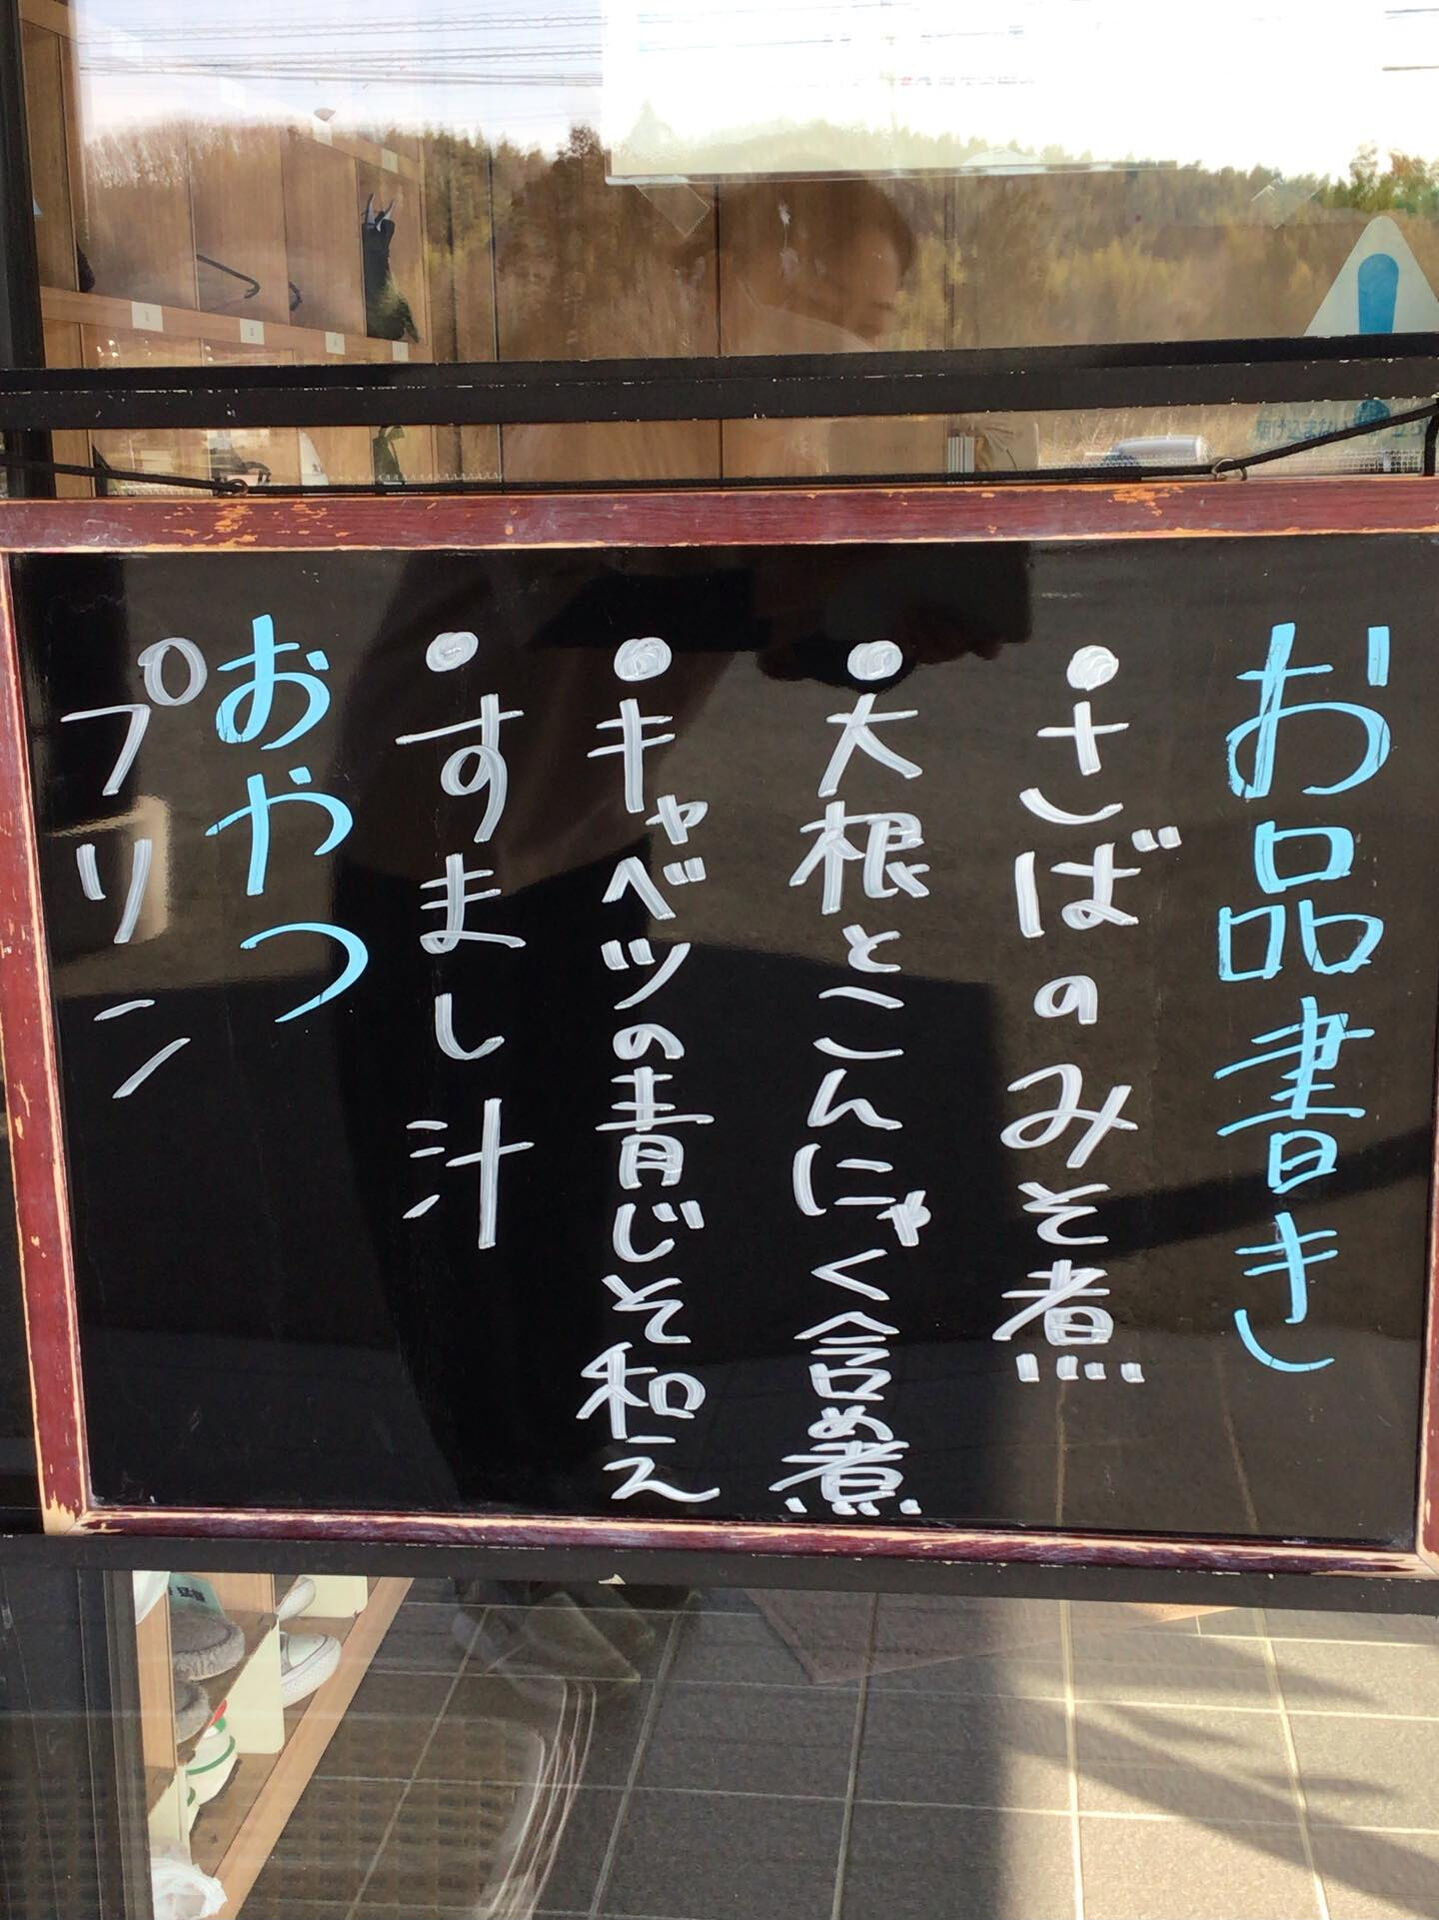 お品書き
・さばのみそ煮
・大根とこんにゃく含め煮
・キャベツの青じそ和え
・すまし汁
おやつ
プリン